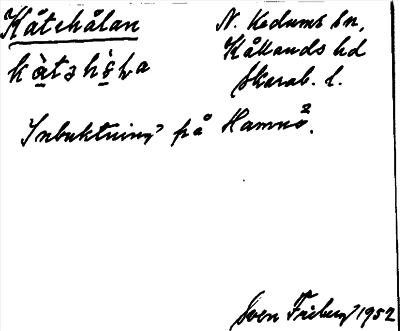 Kåtehålan
N. Kedums sn,
Kållands hd
Skarab. l.
Inbuktning på Hamnö.
Sven Friberg 1952